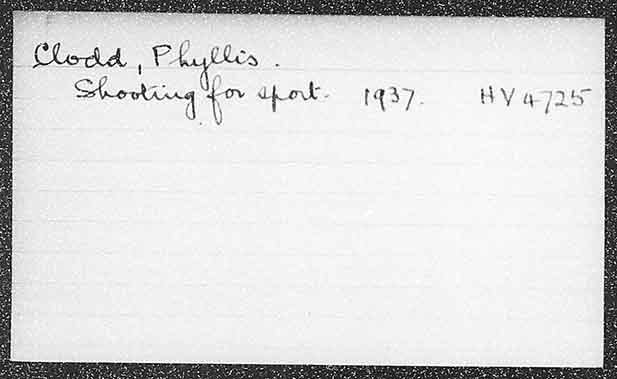 Clodd, Phyllis.
Shooting for sport. 1937. HV 4725